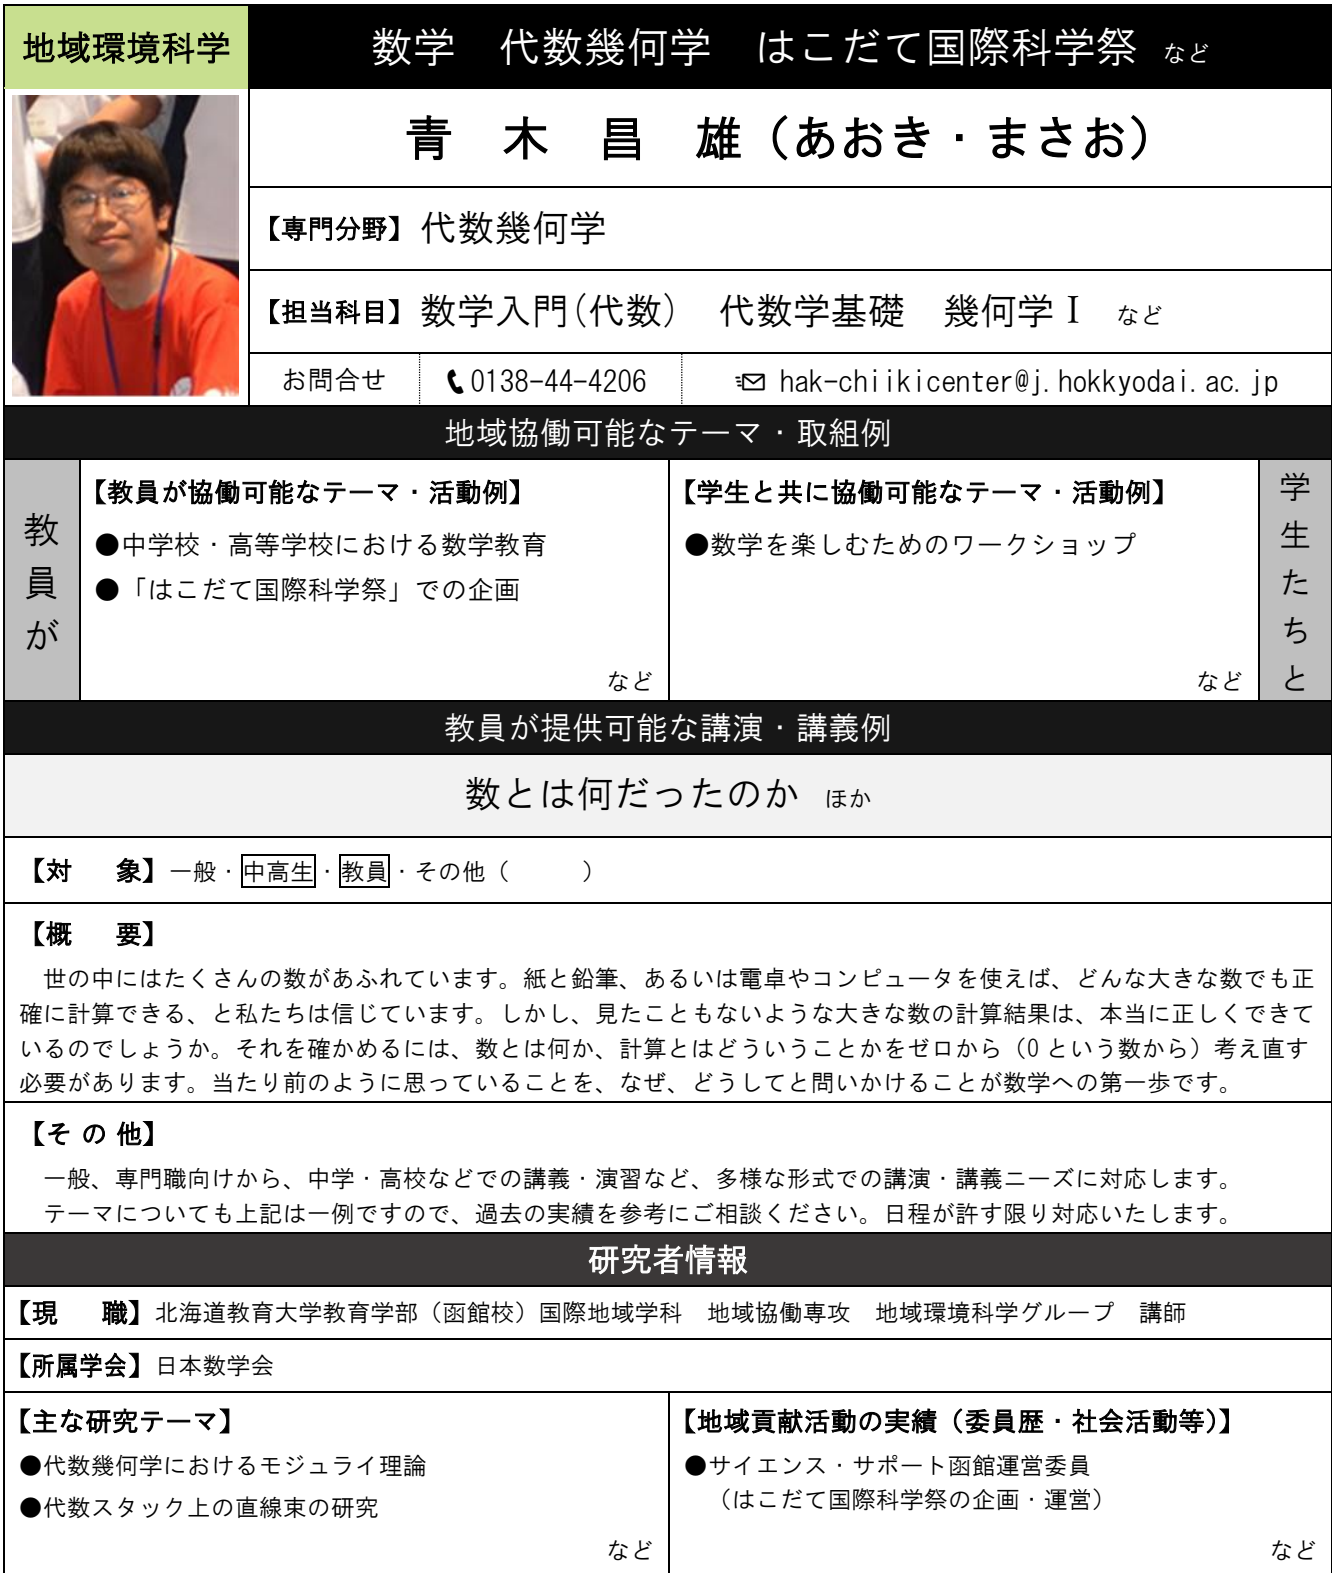 地域環境科学
数学　代数幾何学　はこだて国際科学祭 など
青　木　昌　雄（あおき・まさお）
【専門分野】代数幾何学
【担当科目】数学入門(代数)　代数学基礎　幾何学Ⅰ　など
お問合せ
0138-44-4206
hak-chiikicenter@j.hokkyodai.ac.jp
地域協働可能なテーマ・取組例
教員が
【教員が協働可能なテーマ・活動例】
●中学校・高等学校における数学教育
●「はこだて国際科学祭」での企画
など
【学生と共に協働可能なテーマ・活動例】
●数学を楽しむためのワークショップ
など
学生たちと
教員が提供可能な講演・講義例
数とは何だったのか ほか
【対　象】一般・中高生・教員・その他（　　　）
【概　要】
　世の中にはたくさんの数があふれています。紙と鉛筆、あるいは電卓やコンピュータを使えば、どんな大きな数でも正
確に計算できる、と私たちは信じています。しかし、見たこともないような大きな数の計算結果は、本当に正しくできて
いるのでしょうか。それを確かめるには、数とは何か、計算とはどういうことかをゼロから（0 という数から）考え直す
必要があります。当たり前のように思っていることを、なぜ、どうしてと問いかけることが数学への第一歩です。
【そ の 他】
　一般、専門職向けから、中学・高校などでの講義・演習など、多様な形式での講演・講義ニーズに対応します。
　テーマについても上記は一例ですので、過去の実績を参考にご相談ください。日程が許す限り対応いたします。
研究者情報
【現　職】北海道教育大学教育学部（函館校）国際地域学科　地域協働専攻　地域環境科学グループ　講師
【所属学会】日本数学会
【主な研究テーマ】
●代数幾何学におけるモジュライ理論
●代数スタック上の直線束の研究
など
【地域貢献活動の実績（委員歴・社会活動等）】
●サイエンス・サポート函館運営委員
（はこだて国際科学祭の企画・運営）
など